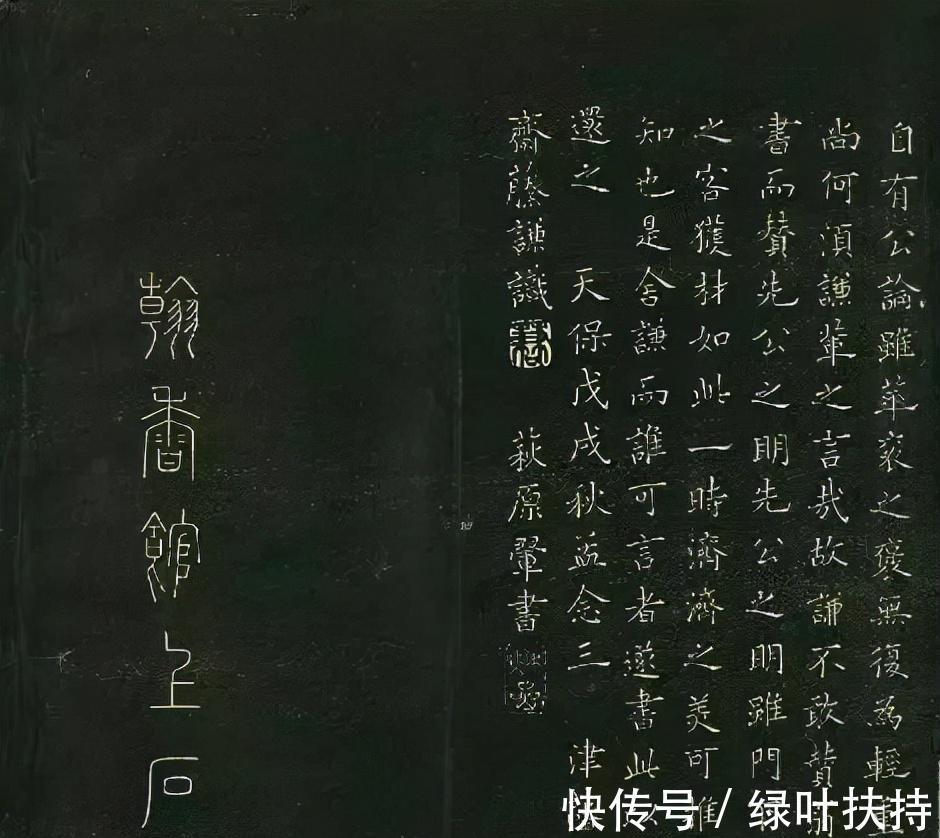 自有公論雖華衮之褒無復為輕
尚何須謙輩之言哉故謙不敢贊
書而贊先公之明先公之明雖門
之容獲材如此一時濟濟之美可推
知也是舍謙而誰可言者遂書此以
還之 天保戊戌秋孟念三 津
齋藤謙識 萩原翬書
翰香館上石
快传号 / 绿叶扶持